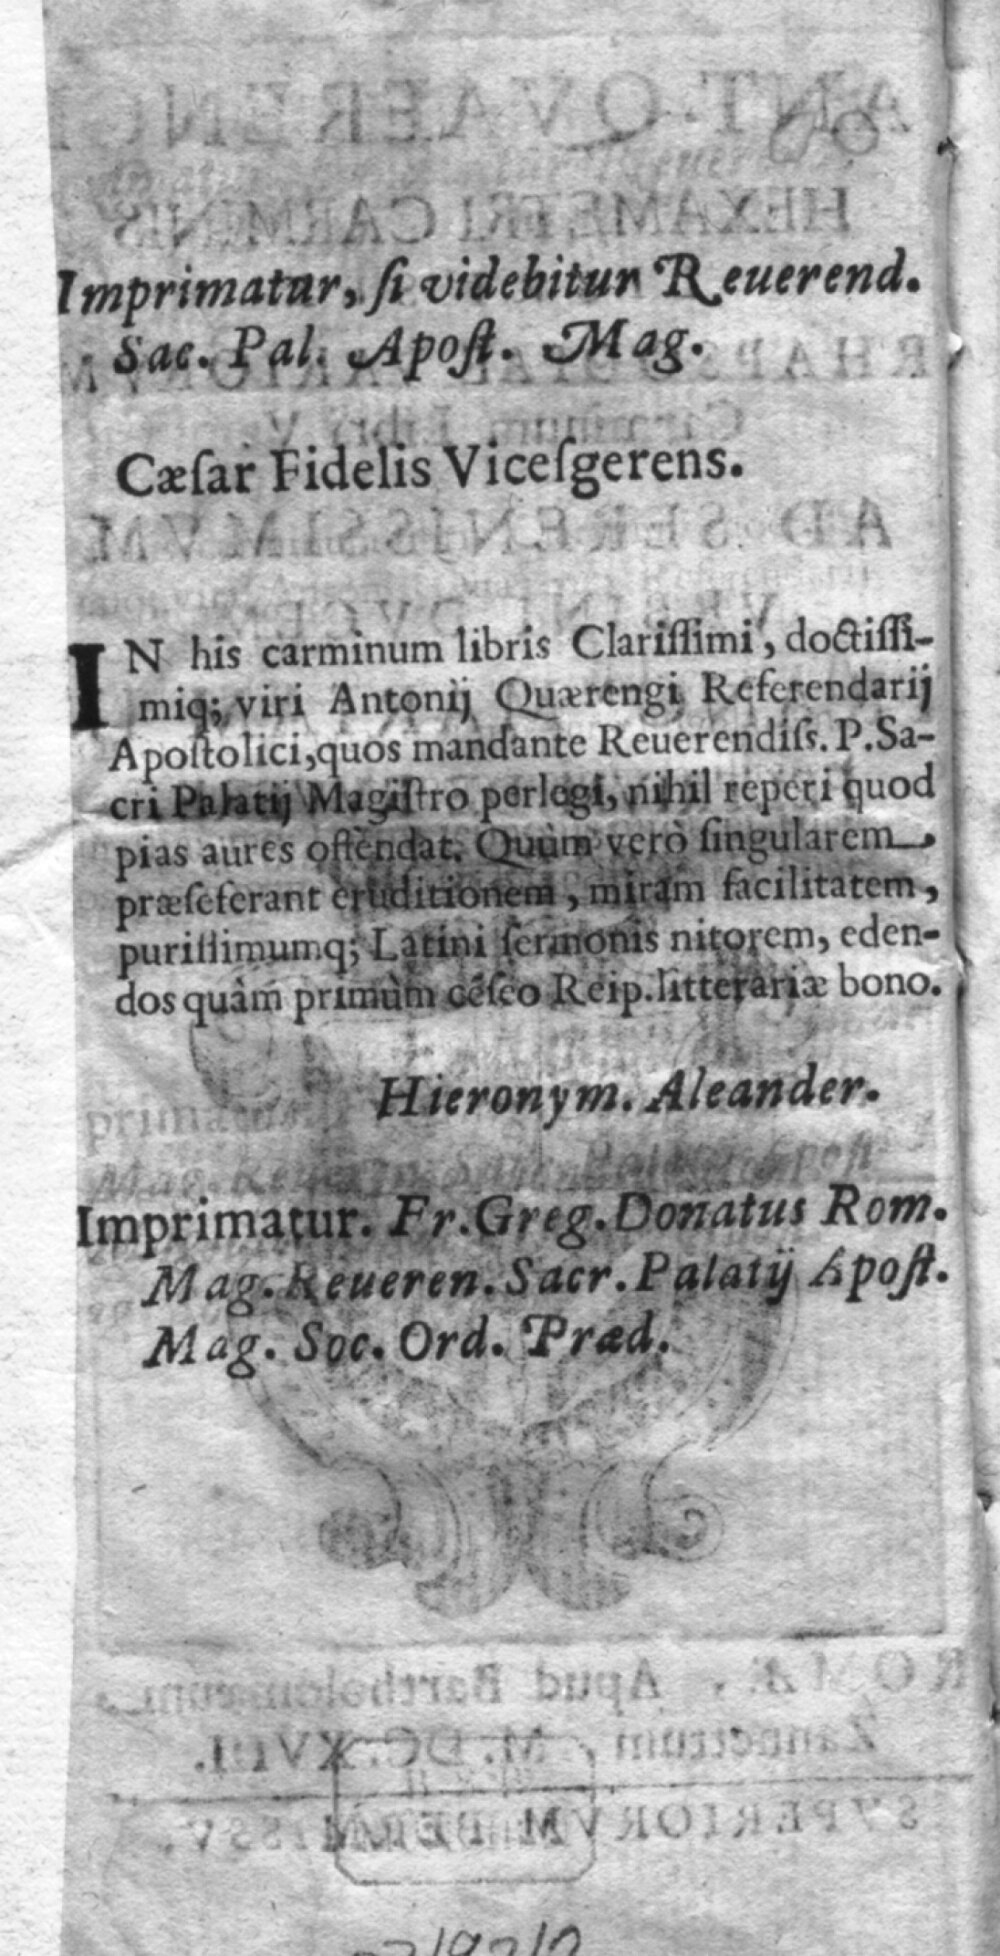 Imprimatur, ſi videbitur Reuerend.
Sac. Pal. Apoſt. Mag.
Cæſar Fidelis Viceſgerens.
IN his carminum libris Clariſſimi, doctiſſi-
miq; viri Antonij Quærengi Referendarij
Apoſtolici, quos mandante Reuerendiſs. P. Sa-
cri Palatij Magiſtro perlegi, nihil reperi quod
pias aures offendat. Quùm verò ſingularem
præſeferant eruditionem, miram facilitatem,
puriſſimumq; Latini ſermonis nitorem, eden-
dos quàm primùm cẽſeo Reip. litterariæ bono.
Hieronym. Aleander.
Imprimatur. Fr. Greg. Donatus Rom.
Mag. Reueren. Sacr. Palatij Apoſt.
Mag. Soc. Ord. Præd.